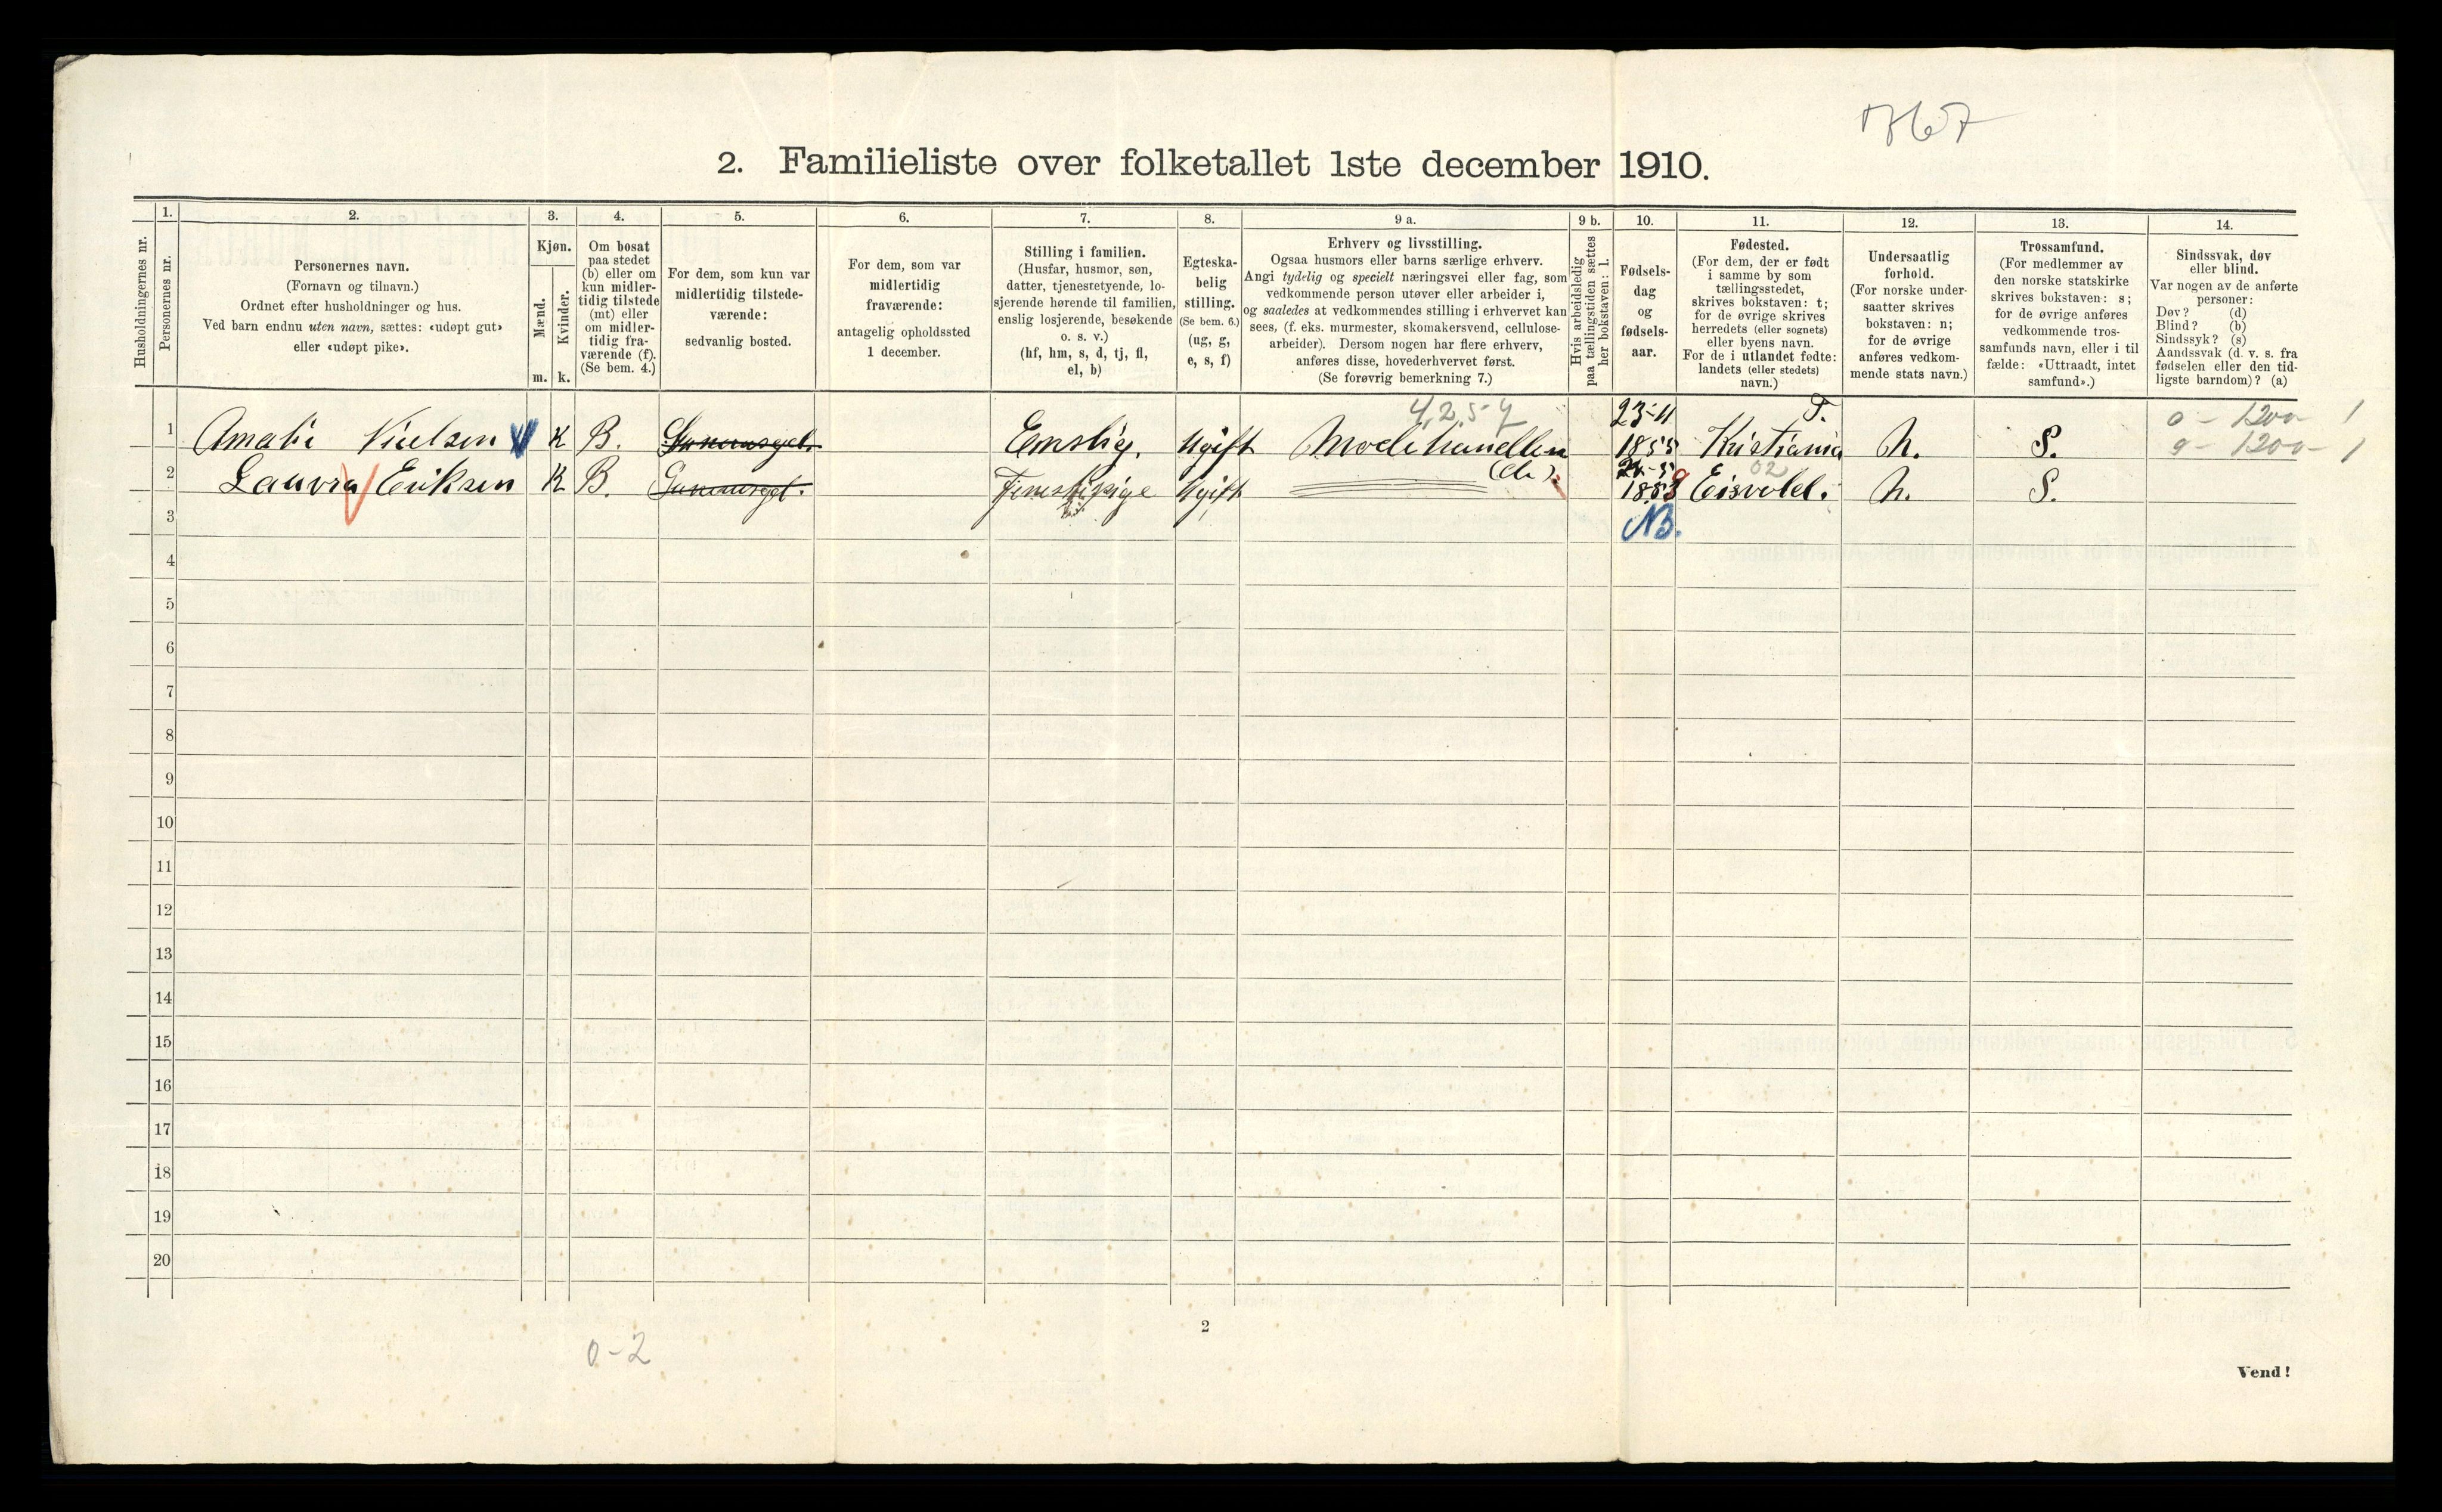 1767
2. Familieliste over folketallet 1ste december 1910.
Husholdningernes nr.
1.
Personernes nr.
2.
Personernes navn.
(Fornavn og tilnavn.)
Ordnet efter husholdninger og hus.
Ved barn endnu uten navn, sættes: «udøpt gut»
eller «udøpt pike».
3.
Kjøn.
Mænd.
m.
Kvinder.
k.
4.
Om bosat
paa stedet
(b) eller om
kun midler-
tidig tilstede
(mt) eller
om midler-
tidig fra-
værende (f).
(Se bem. 4.)
5.
For dem, som kun var
midlertidig tilstede-
værende:
sedvanlig bosted.
6.
For dem, som var
midlertidig
fraværende:
antagelig opholdssted
1 december.
7.
Stilling i familien.
(Husfar, husmor, søn,
datter, tjenestetyende, lo-
sjerende hørende til familien,
enslig losjerende, besøkende
o. s. v.)
(hf, hm, s, d, tj, fl,
el, b)
8.
Egteska-
belig
stilling.
(Se bem. 6.)
(ug, g,
e, s, f)
9 a.
Erhverv og livsstilling.
Ogsaa husmors eller barns særlige erhverv.
Angi tydelig og specielt næringsvei eller fag, som
vedkommende person utøver eller arbeider i,
og saaledes at vedkommendes stilling i erhvervet kan
sees, (f. eks. murmester, skomakersvend, cellulose-
arbeider). Dersom nogen har flere erhverv,
anføres disse, hovederhvervet først.
(Se forøvrig bemerkning 7.)
9 b.
Hvis arbeidsledig
paa tællingstiden sættes
her bokstaven: l.
10.
Fødsels-
dag
og
fødsels-
aar.
11.
Fødested.
(For dem, der er født
i samme by som
tællingsstedet,
skrives bokstaven: t;
for de øvrige skrives
herredets (eller sognets)
eller byens navn.
For de i utlandet fødte:
landets (eller stedets)
navn.)
12.
Undersaatlig
forhold.
(For norske under-
saatter skrives
bokstaven: n;
for de øvrige
anføres vedkom-
mende stats navn.)
13.
Trossamfund.
(For medlemmer av
den norske statskirke
skrives bokstaven: s;
for de øvrige anføres
vedkommende tros-
samfunds navn, eller i til
fælde: «Uttraadt, intet
samfund».)
14.
Sindssvak, døv
eller blind.
Var nogen av de anførte
personer:
Døv? (d)
Blind? (b)
Sindssyk? (s)
Aandssvak (d. v. s. fra
fødselen eller den tid-
ligste barndom)? (a)
4,2,5-7 23-11 T. 0 - 1200 - 1
1 Amalie Nielsen K B. Enslig. Ugift Modehandlerin 1855 Kristiania N. S. 0 - 1200 - 1
(de) 02
2 Lauvra Eriksen K B. Tjenestepige Ugift Eisvold. N. S.
3 NB.
4
5
6
7
8
9
10
11
12
13
14
15
16
17
18
19
20
2
0-2
Vend!